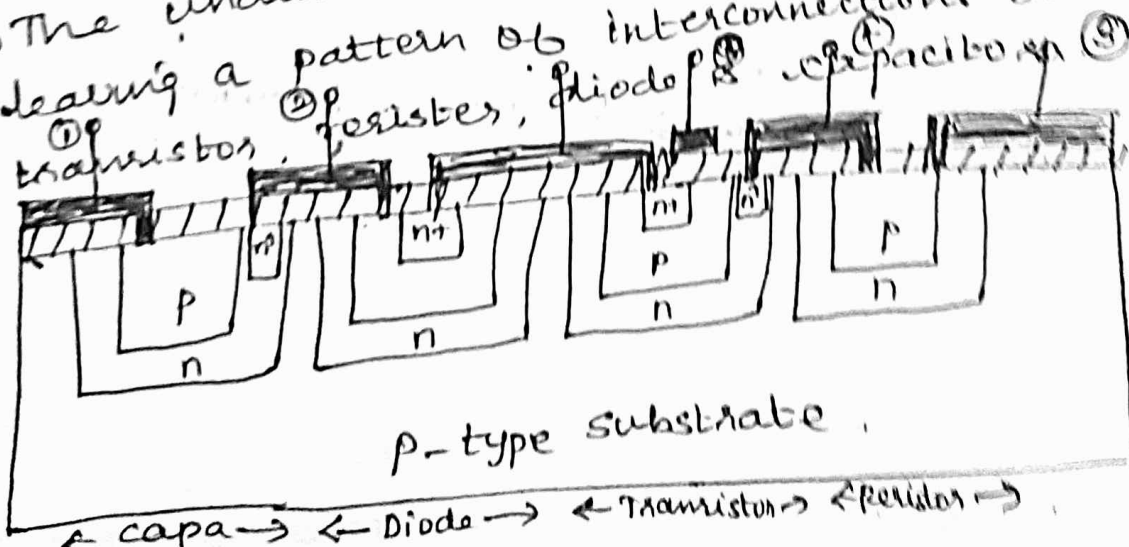 The
leaving a pattern of interconnections
transistor, resister, diode & capacitor
① ② ④ ⑤
p n+ n+ n+ p
p
n n n n
p-type substrate.
← capa → ← Diode → ← Transistor → ← Resistor →